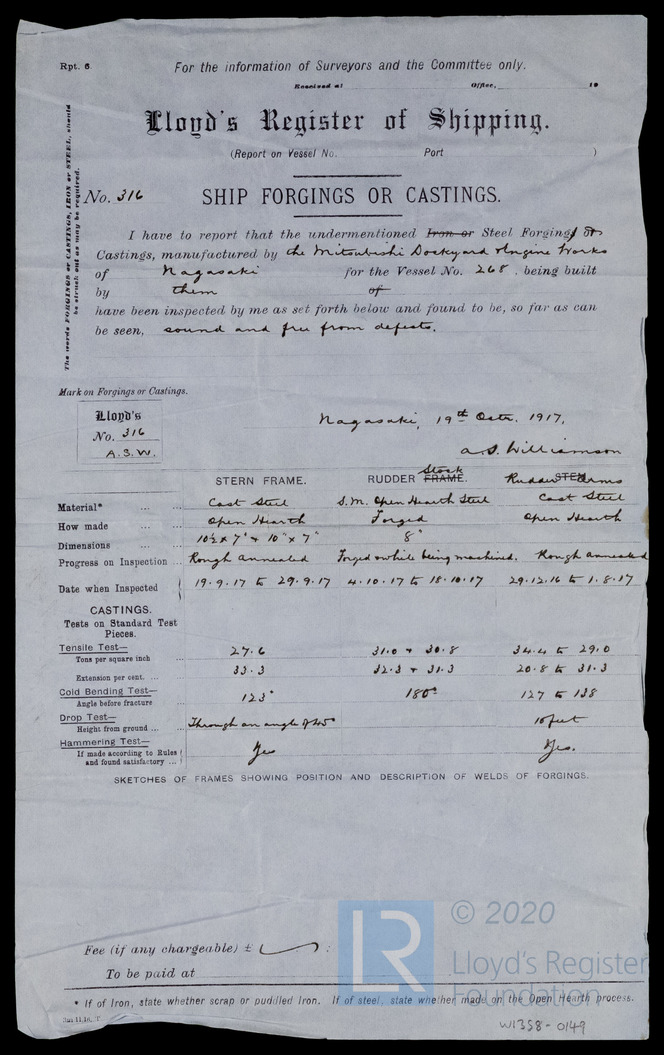 Rpt. 6.
For the information of Surveyors and the Committee only.
Received at Office, 19
Lloyd's Register of Shipping.
(Report on Vessel No. Port )
The words FORGINGS or CASTINGS, IRON or STEEL, should
be struck out as may be required.
No. 316
SHIP FORGINGS OR CASTINGS.
I have to report that the undermentioned Iron or Steel Forgings or
Castings, manufactured by the Mitsubishi Dockyard & Engine Works
of Nagasaki for the Vessel No. 268, being built
by them of
have been inspected by me as set forth below and found to be, so far as can
be seen, sound and free from defects.
Mark on Forgings or Castings.
Lloyd's
No. 316
A.S.W.
Nagasaki, 19th Octr. 1917.
A.S. Williamson
STERN FRAME. RUDDER FRAME. Stock Rudder STEM Arms
Material* ... ... Cast Steel S.M. Open Hearth Steel Cast Steel
How made ... ... Open Hearth Forged Open Hearth
Dimensions ... ... 10½ x 7" & 10" x 7" 8"
Progress on Inspection ... Rough annealed Forged & while being machined. Rough annealed
Date when Inspected 19.9.17 to 29.9.17 4.10.17 to 18.10.17 29.12.16 to 1.8.17
CASTINGS.
Tests on Standard Test
Pieces.
Tensile Test— 27.6 31.0 & 30.8 34.4 to 29.0
Tons per square inch ...
Extension per cent. ... 33.3 32.3 & 31.3 20.8 to 31.3
Cold Bending Test— 123° 180° 127 to 138
Angle before fracture ...
Drop Test— Through an angle of 45° 10 feet
Height from ground ... ...
Hammering Test— Yes Yes.
If made according to Rules
and found satisfactory ...
SKETCHES OF FRAMES SHOWING POSITION AND DESCRIPTION OF WELDS OF FORGINGS.
Fee (if any chargeable) £ :
To be paid at
* If of Iron, state whether scrap or puddled Iron. If of steel, state whether made on the Open Hearth process.
LR
© 2020
Lloyd's Register
Foundation
W1358-0149